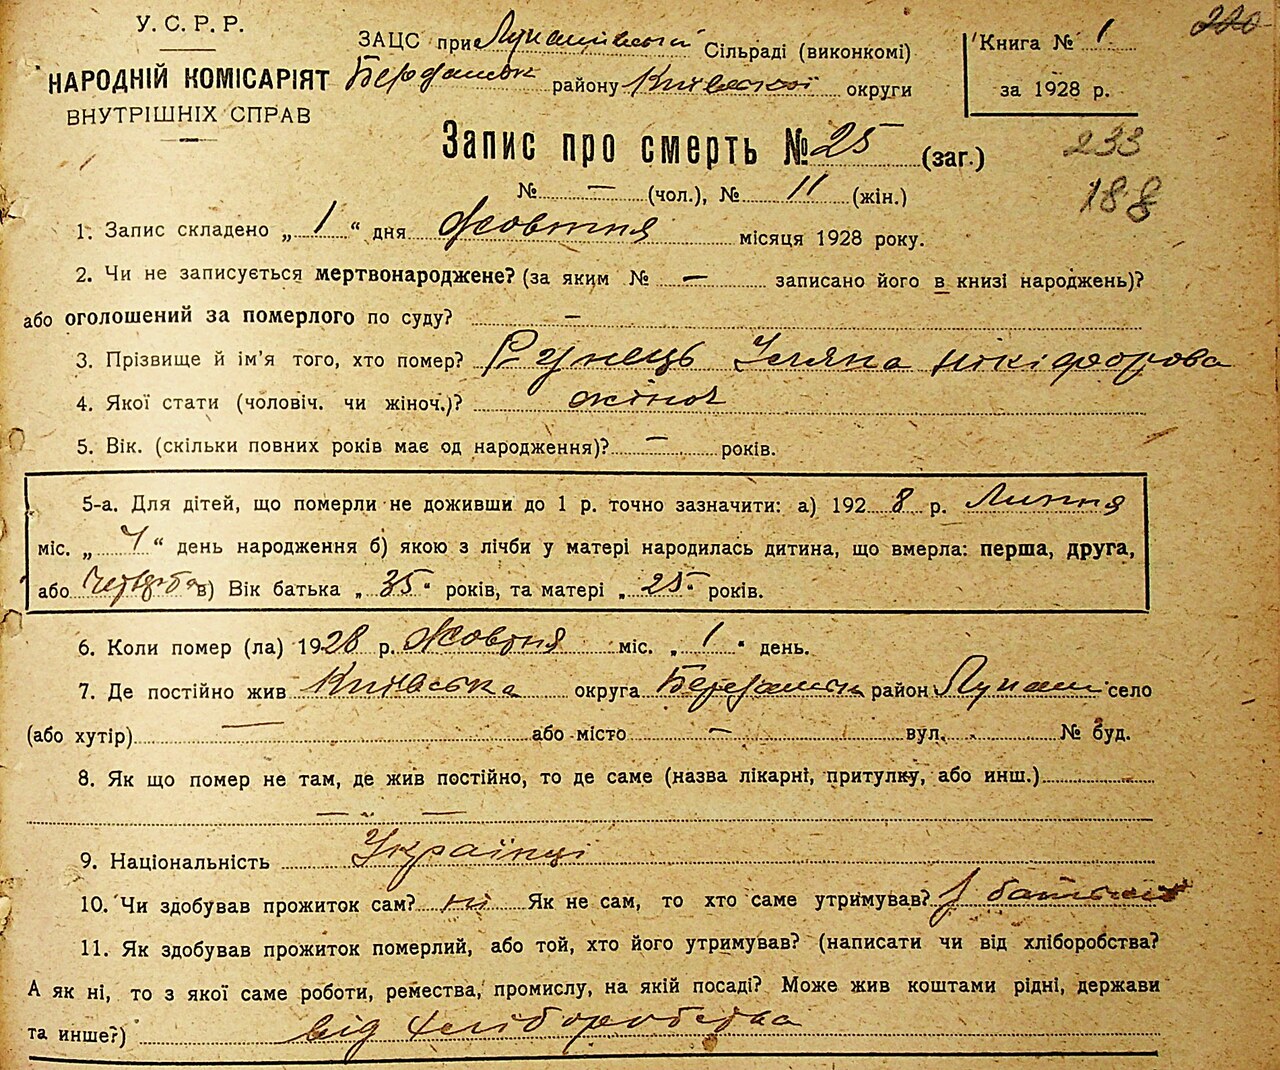 У. С. Р. Р.
НАРОДНІЙ КОМІСАРІЯТ
ВНУТРІШНІХ СПРАВ
ЗАЦС при Сільраді (виконкомі)
району Київської округи
Книга № 1
за 1928 р.
220
233
188
Запис про смерть № 25 (заг.)
№ — (чол.), № 11 (жін.)
1. Запис складено „ 1 “ дня Жовтня місяця 1928 року.
2. Чи не записується мертвонароджене? (за яким № — записано його в книзі народжень)?
або оголошений за померлого по суду? —
3. Прізвище й ім’я того, хто помер? Рунець Уляна Нікіфорова
4. Якої стати (чоловіч. чи жіноч.)? жіноч
5. Вік. (скільки повних років має од народження)? — років.
5-а. Для дітей, що померли не доживши до 1 р. точно зазначити: а) 192 8 р. Липня
міс. „ “ день народження б) якою з лічби у матері народилась дитина, що вмерла: перша, друга,
або в) Вік батька „ 35 “ років, та матері „ 25 “ років.
6. Коли помер (ла) 1928 р. Жовтня міс. „ 1 “ день.
7. Де постійно жив Київська округа район село
(або хутір) — або місто — вул. № буд.
8. Як що помер не там, де жив постійно, то де саме (назва лікарні, притулку, або инш.)
— —
9. Національність Українці
10. Чи здобував прожиток сам? ні Як не сам, то хто саме утримував?
11. Як здобував прожиток померлий, або той, хто його утримував? (написати чи від хліборобства?
А як ні, то з якої саме роботи, ремества, промислу, на якій посаді? Може жив коштами рідні, держави
та инше?) від хліборобства